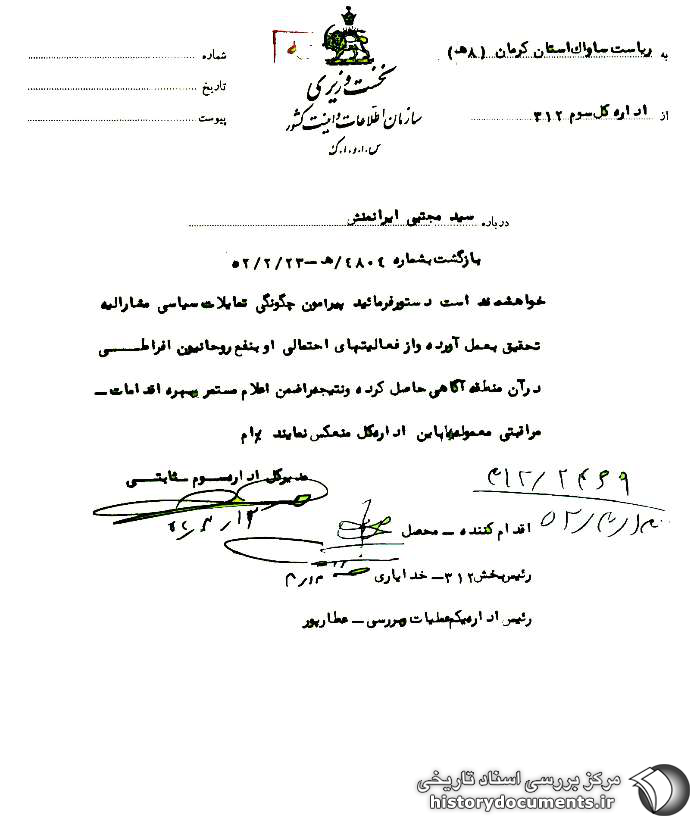 نخست وزیری
سازمان اطلاعات و امنیت کشور
س.ا.و.ا.ک
به ریاست ساواک استان کرمان (۸هـ)
از اداره کل سوم ۳۱۲
شماره
تاریخ
پیوست
درباره سید مجتبی ایرانمنش
بازگشت بشماره ۴۸۰۴/هـ - ۵۲/۲/۲۳
خواهشمند است دستور فرمائید پیرامون چگونگی تمایلات سیاسی مشارالیه
تحقیق بعمل آورده و از فعالیتهای احتمالی او بنفع روحانیون افراطی
در آن منطقه آگاهی حاصل کرده و نتیجه را ضمن اعلام مستمر بهره اقدامات
مراقبتی معموله باین اداره کل منعکس نمایند
مدیر کل اداره سوم - ثابتی
۳۱۲/۲۴۶۹
اقدام کننده - محصل
رئیس بخش ۳۱۲ - خدایاری
رئیس اداره یکم عملیات و بررسی - عطارپور
مرکز بررسی اسناد تاریخی
historydocuments.ir